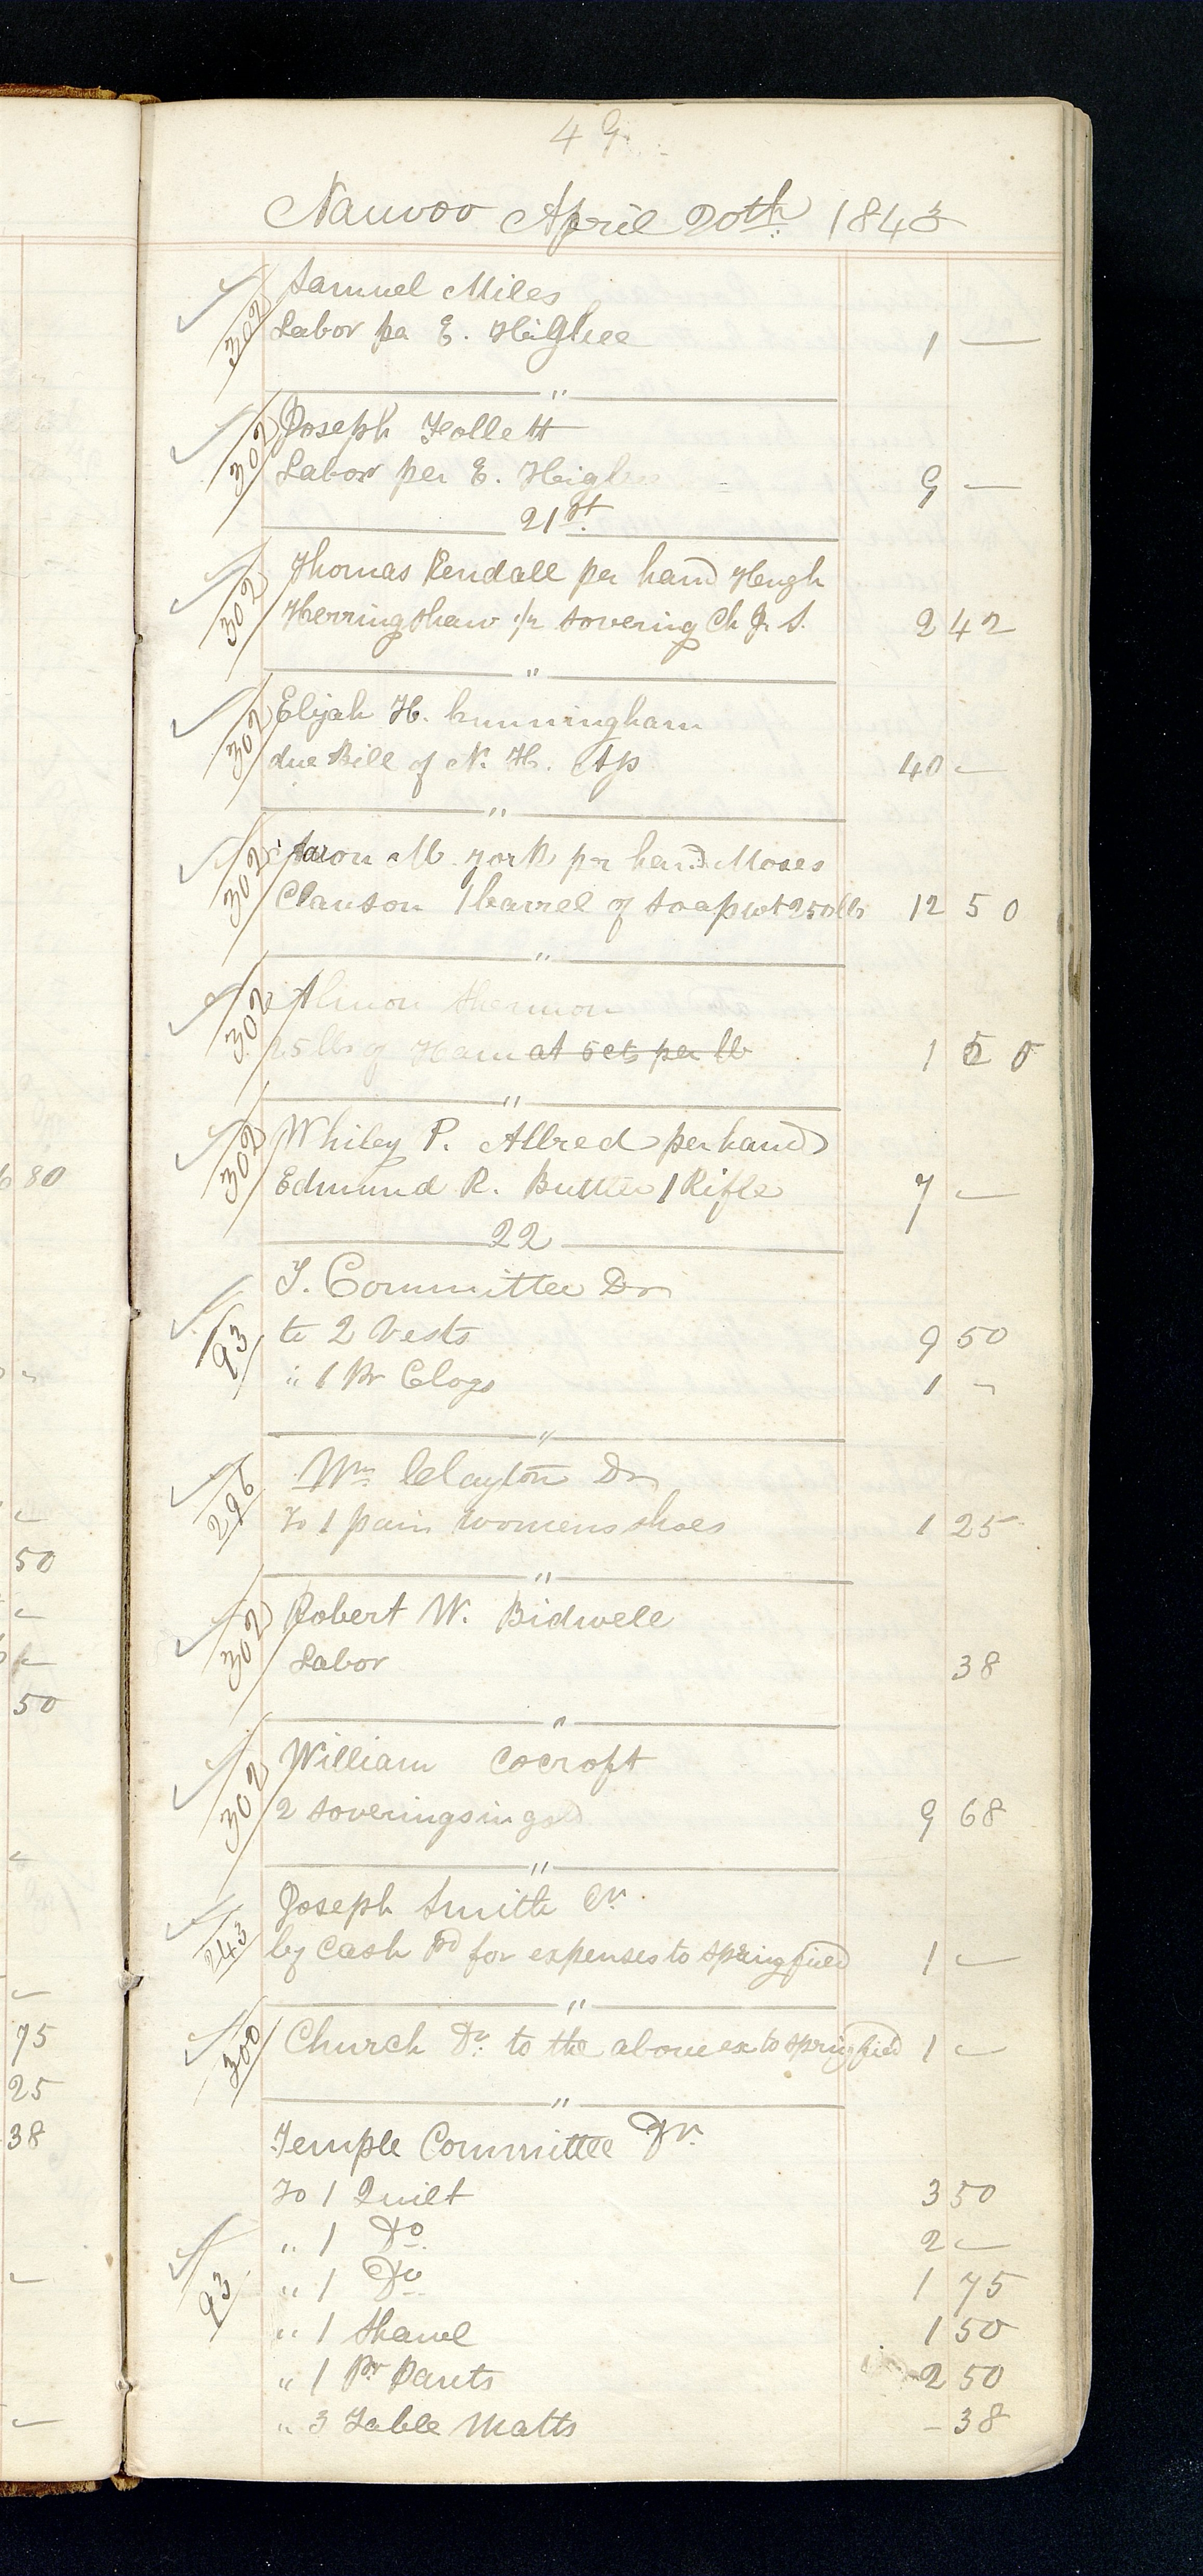 49
Nauvoo April 20th 1843
302 Samuel Miles
Labor per E. Higbee 1 —
"
302 Joseph Follett
Labor per E. Higbee 9 —
21st
302 Thomas Kendall per hand Hugh
Herringshaw ½ sovering Ch J. S. 2 42
"
302 Elijah H. Cunningham
due Bill of N. H. Ap 40 —
"
302 Aaron M. York pr hand Moses
Clauson 1 barrel of soap wt 250 lbs 12 50
"
302 Almon Shermon
25 lbs of Ham at 5 cts per lb 1 50
"
302 Whiley P. Allred per hand
Edmund R. Butter 1 Rifle 7 —
22
T. Committee Dr
93 to 2 Vests 9 50
" 1 Pr Clogs 1 -
"
296 Wm Clayton Dr
To 1 pair womens shoes 1 25
"
302 Robert W. Bidwell
Labor 38
"
302 William Cocroft
2 soverings in gold 9 68
"
Joseph Smith Cr
243 by Cash pd for expenses to Springfield 1 —
"
300 Church Dr to the above ex to Springfield 1 —
"
Temple Committee Dr
To 1 Quilt 3 50
" 1 Do 2 —
93 " 1 Do 1 75
" 1 Shawl 1 50
" 1 Pr Pants 2 50
" 3 Table Matts - 38
80
50
50
75
25
38